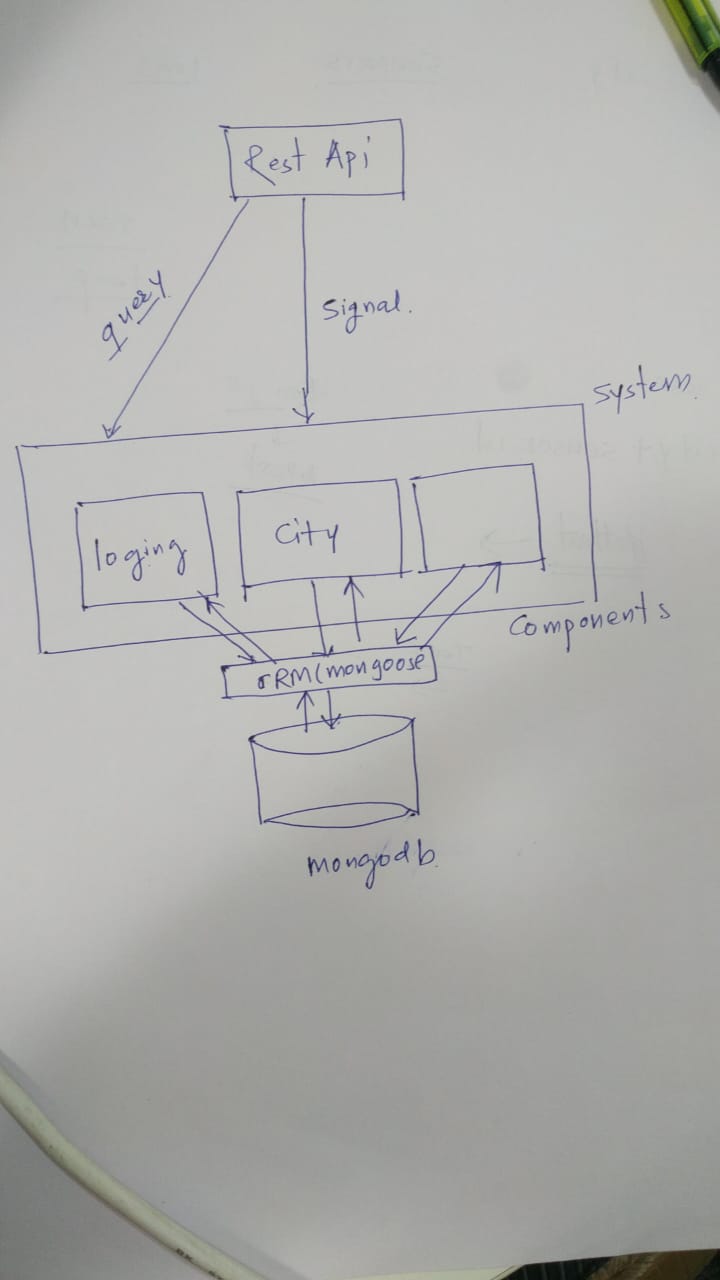 Rest Api
query
Signal.
system.
loging
City
Components
ORM(mongoose
mongodb